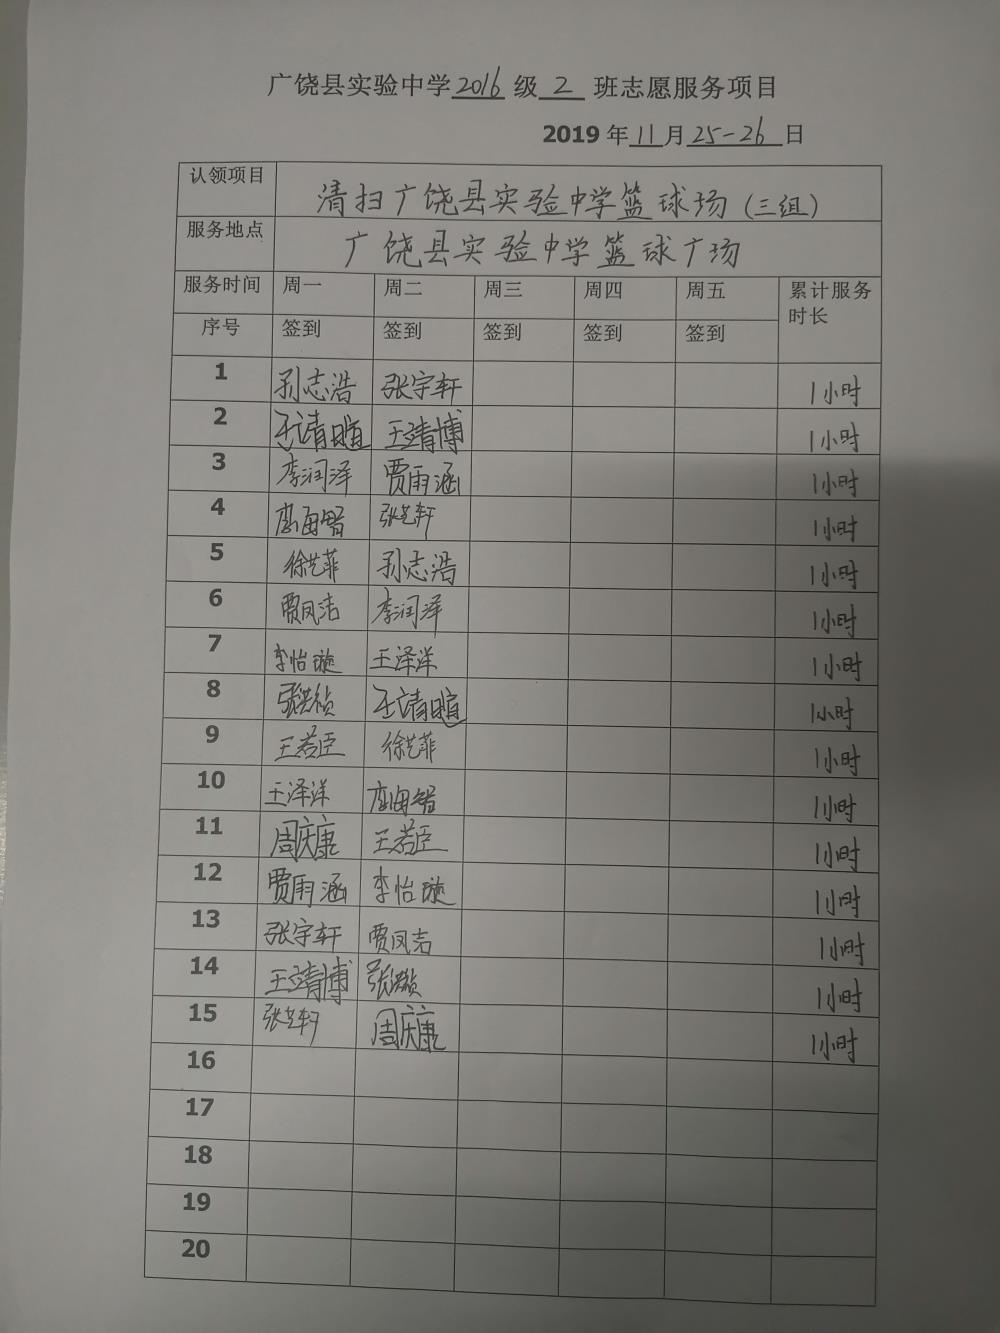 广饶县实验中学2016级2班志愿服务项目
2019年11月25-26日
认领项目 清扫广饶县实验中学篮球场(三组)
服务地点 广饶县实验中学篮球广场
服务时间 周一 周二 周三 周四 周五 累计服务时长
序号 签到 签到 签到 签到 签到
1 孙志浩 张宇轩 1小时
2 王靖暄 王靖博 1小时
3 李润泽 贾雨涵 1小时
4 张艺轩 1小时
5 徐艺菲 孙志浩 1小时
6 贾凤洁 李润泽 1小时
7 李怡璇 王泽洋 1小时
8 王靖暄 1小时
9 王若臣 徐艺菲 1小时
10 王泽洋 1小时
11 周庆康 王若臣 1小时
12 贾雨涵 李怡璇 1小时
13 张宇轩 贾凤洁 1小时
14 王靖博 1小时
15 张艺轩 周庆康 1小时
16
17
18
19
20